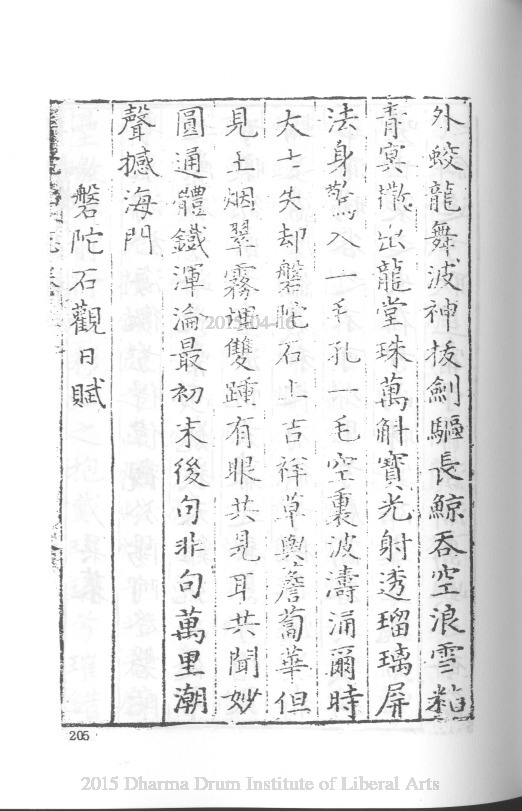 外蛟龍舞波神拔劍驅長鯨吞空浪雪粘
青冥撒出龍堂珠萬斛寶光射透瑠璃屏
法身驚入一毛孔一毛空裏波濤涌爾時
大士失却磐陀石上吉祥草與薝蔔華但
見土烟翠霧雙踵有眼共見耳共聞妙
圓通體鐵渾淪最初末後句非句萬里潮
聲撼海門
磐陀石觀日賦
205
2015-04-16
2015 Dharma Drum Institute of Liberal Arts